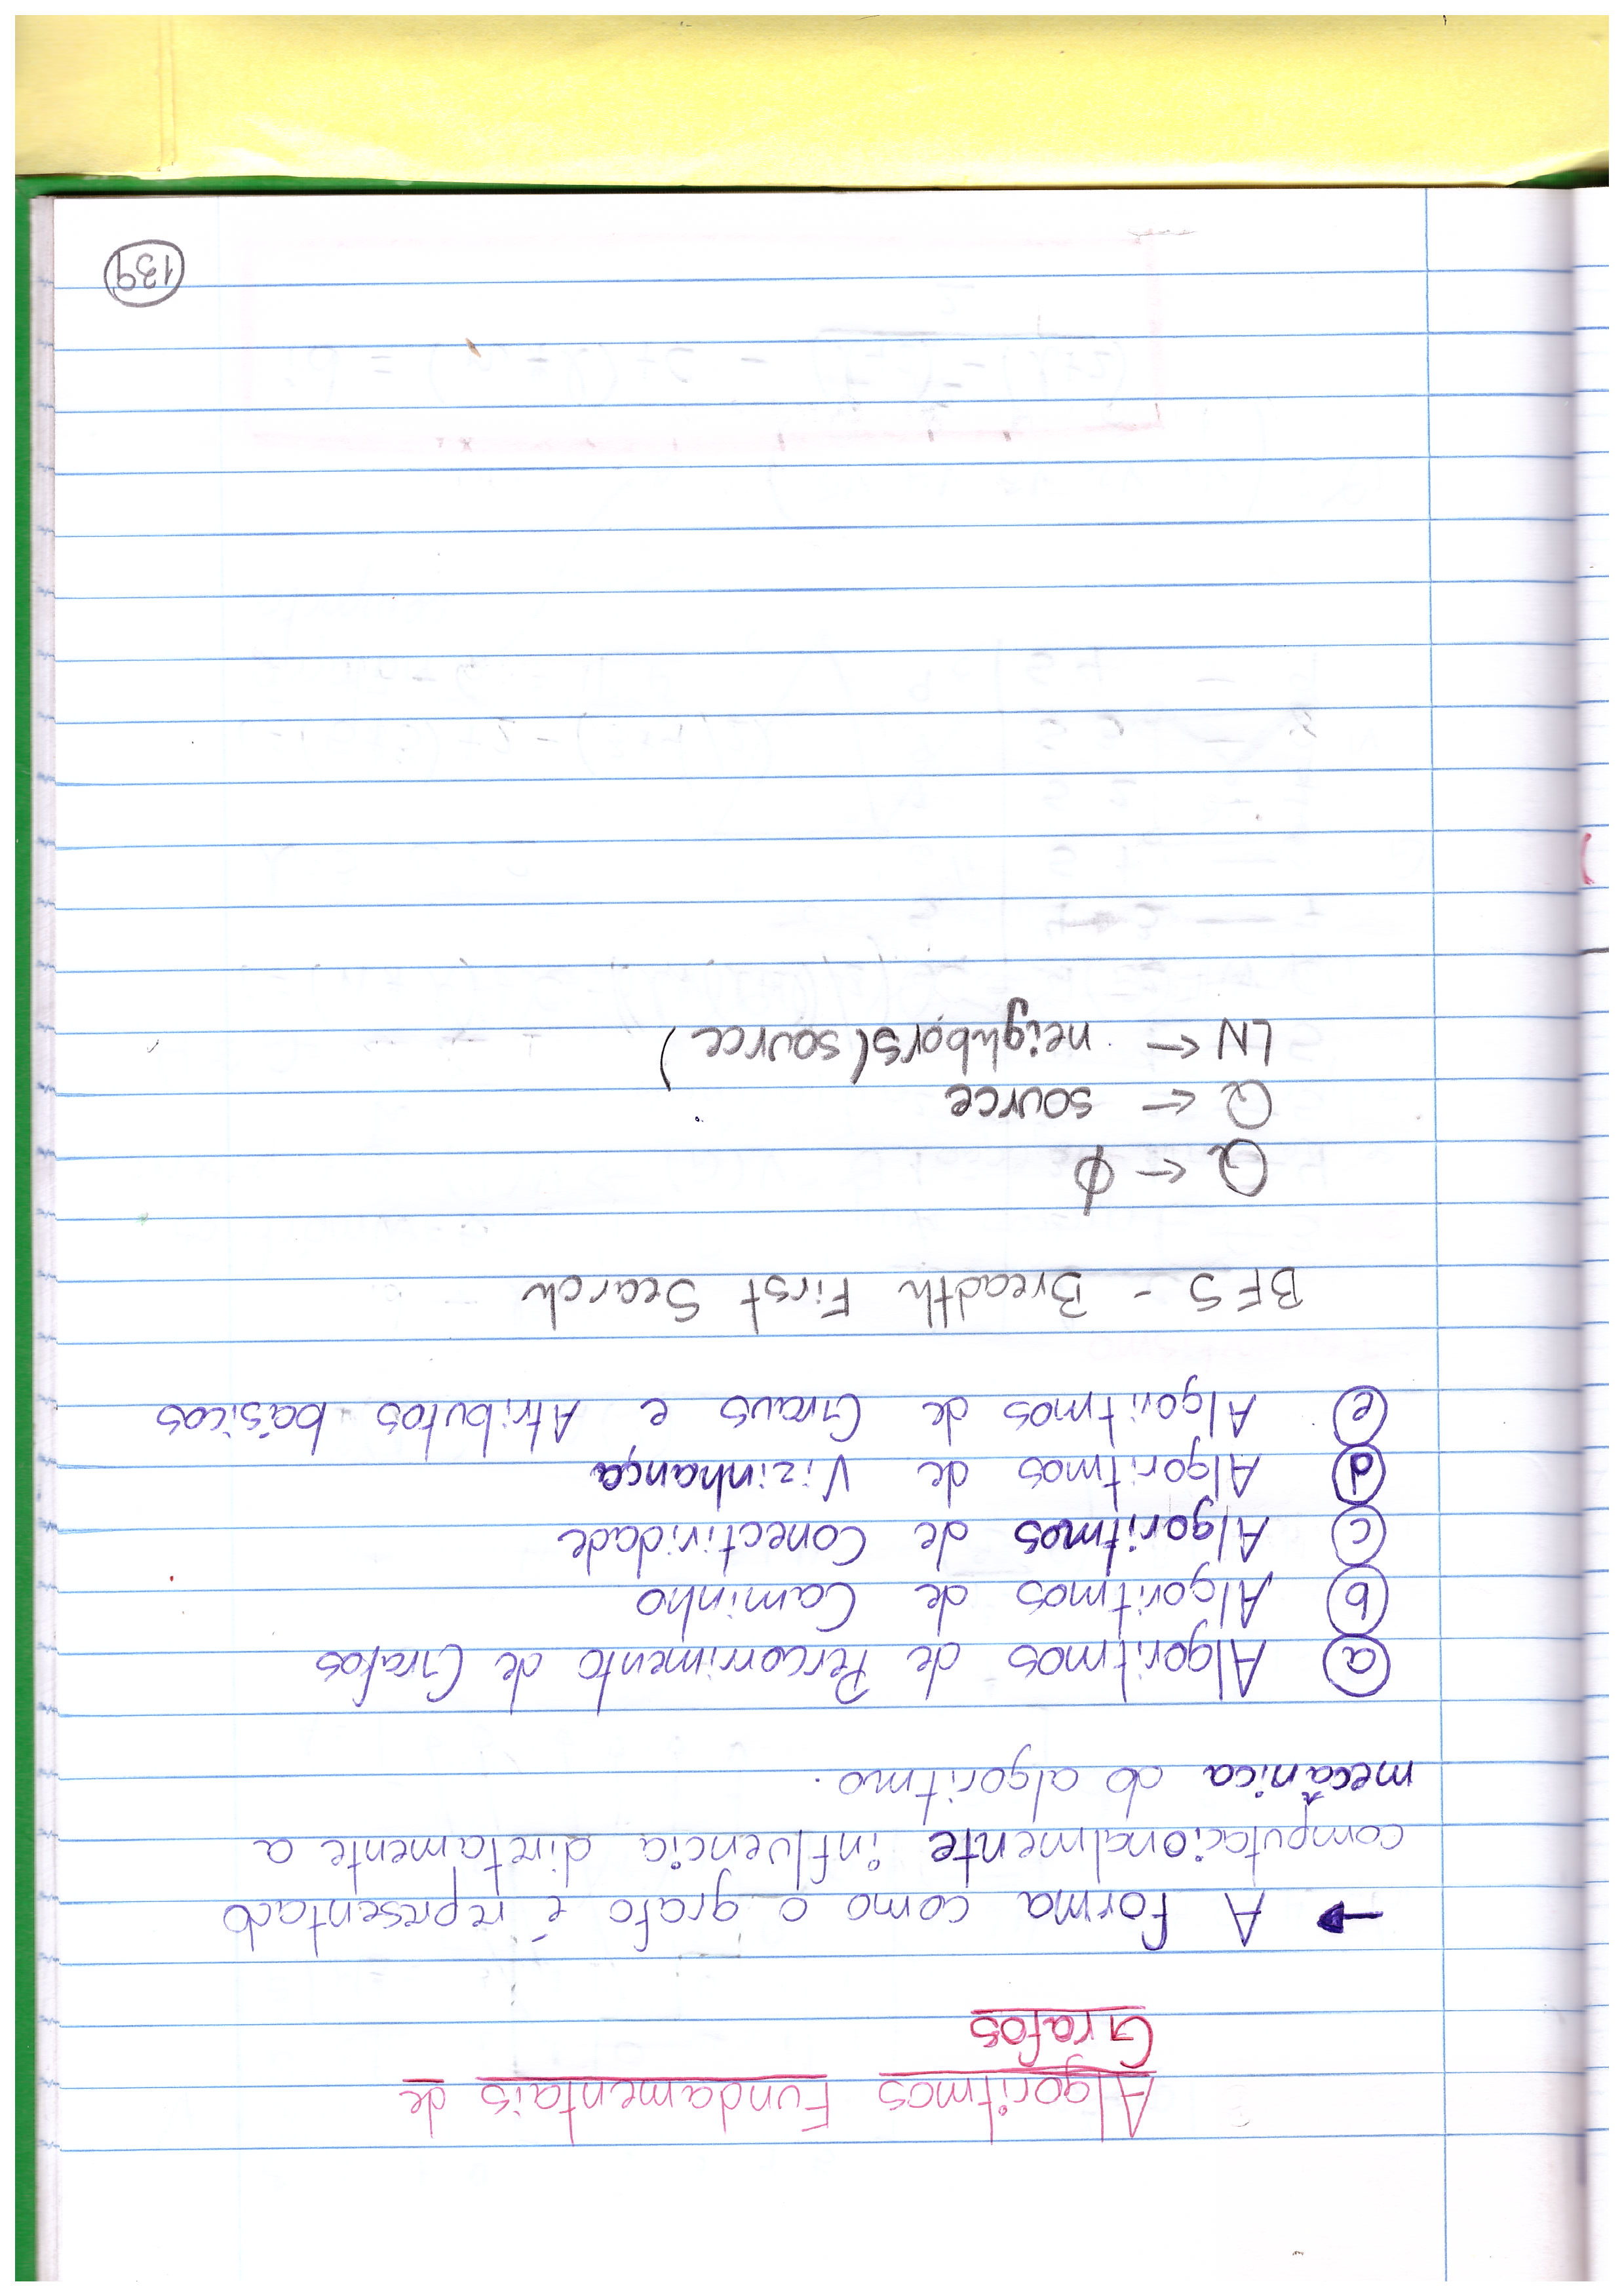 Algoritmos Fundamentais de
Grafos
→ A forma como o grafo é representado
computacionalmente influencia diretamente a
mecânica do algoritmo.
a Algoritmos de Percorrimento de Grafos
b Algoritmos de Caminho
c Algoritmos de Conectividade
d Algoritmos de Vizinhança
e Algoritmos de Graus e Atributos básicos
BFS - Breadth First Search
Q ← ϕ
Q ← source
LN ← neighbors(source)
139